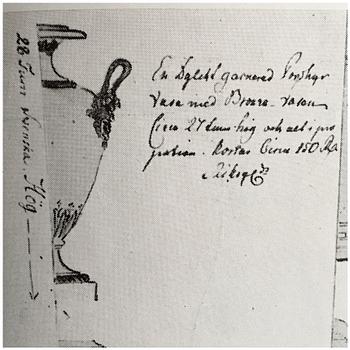 28 Tum svenska. Hög
En Dylikt garnered Porphyr
Vasa med Bronze - vasen
Circa 27 tum hög och alt i pro
portion. Kostar Circa 150 Rd